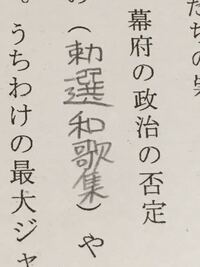 たちの
幕府の政治の否定
の（勅選和歌集）や
。うちわけの最大ジャ